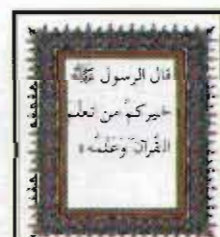 قال الرسول ﷺ
خيركم من تعلم
القرآن وعلمه